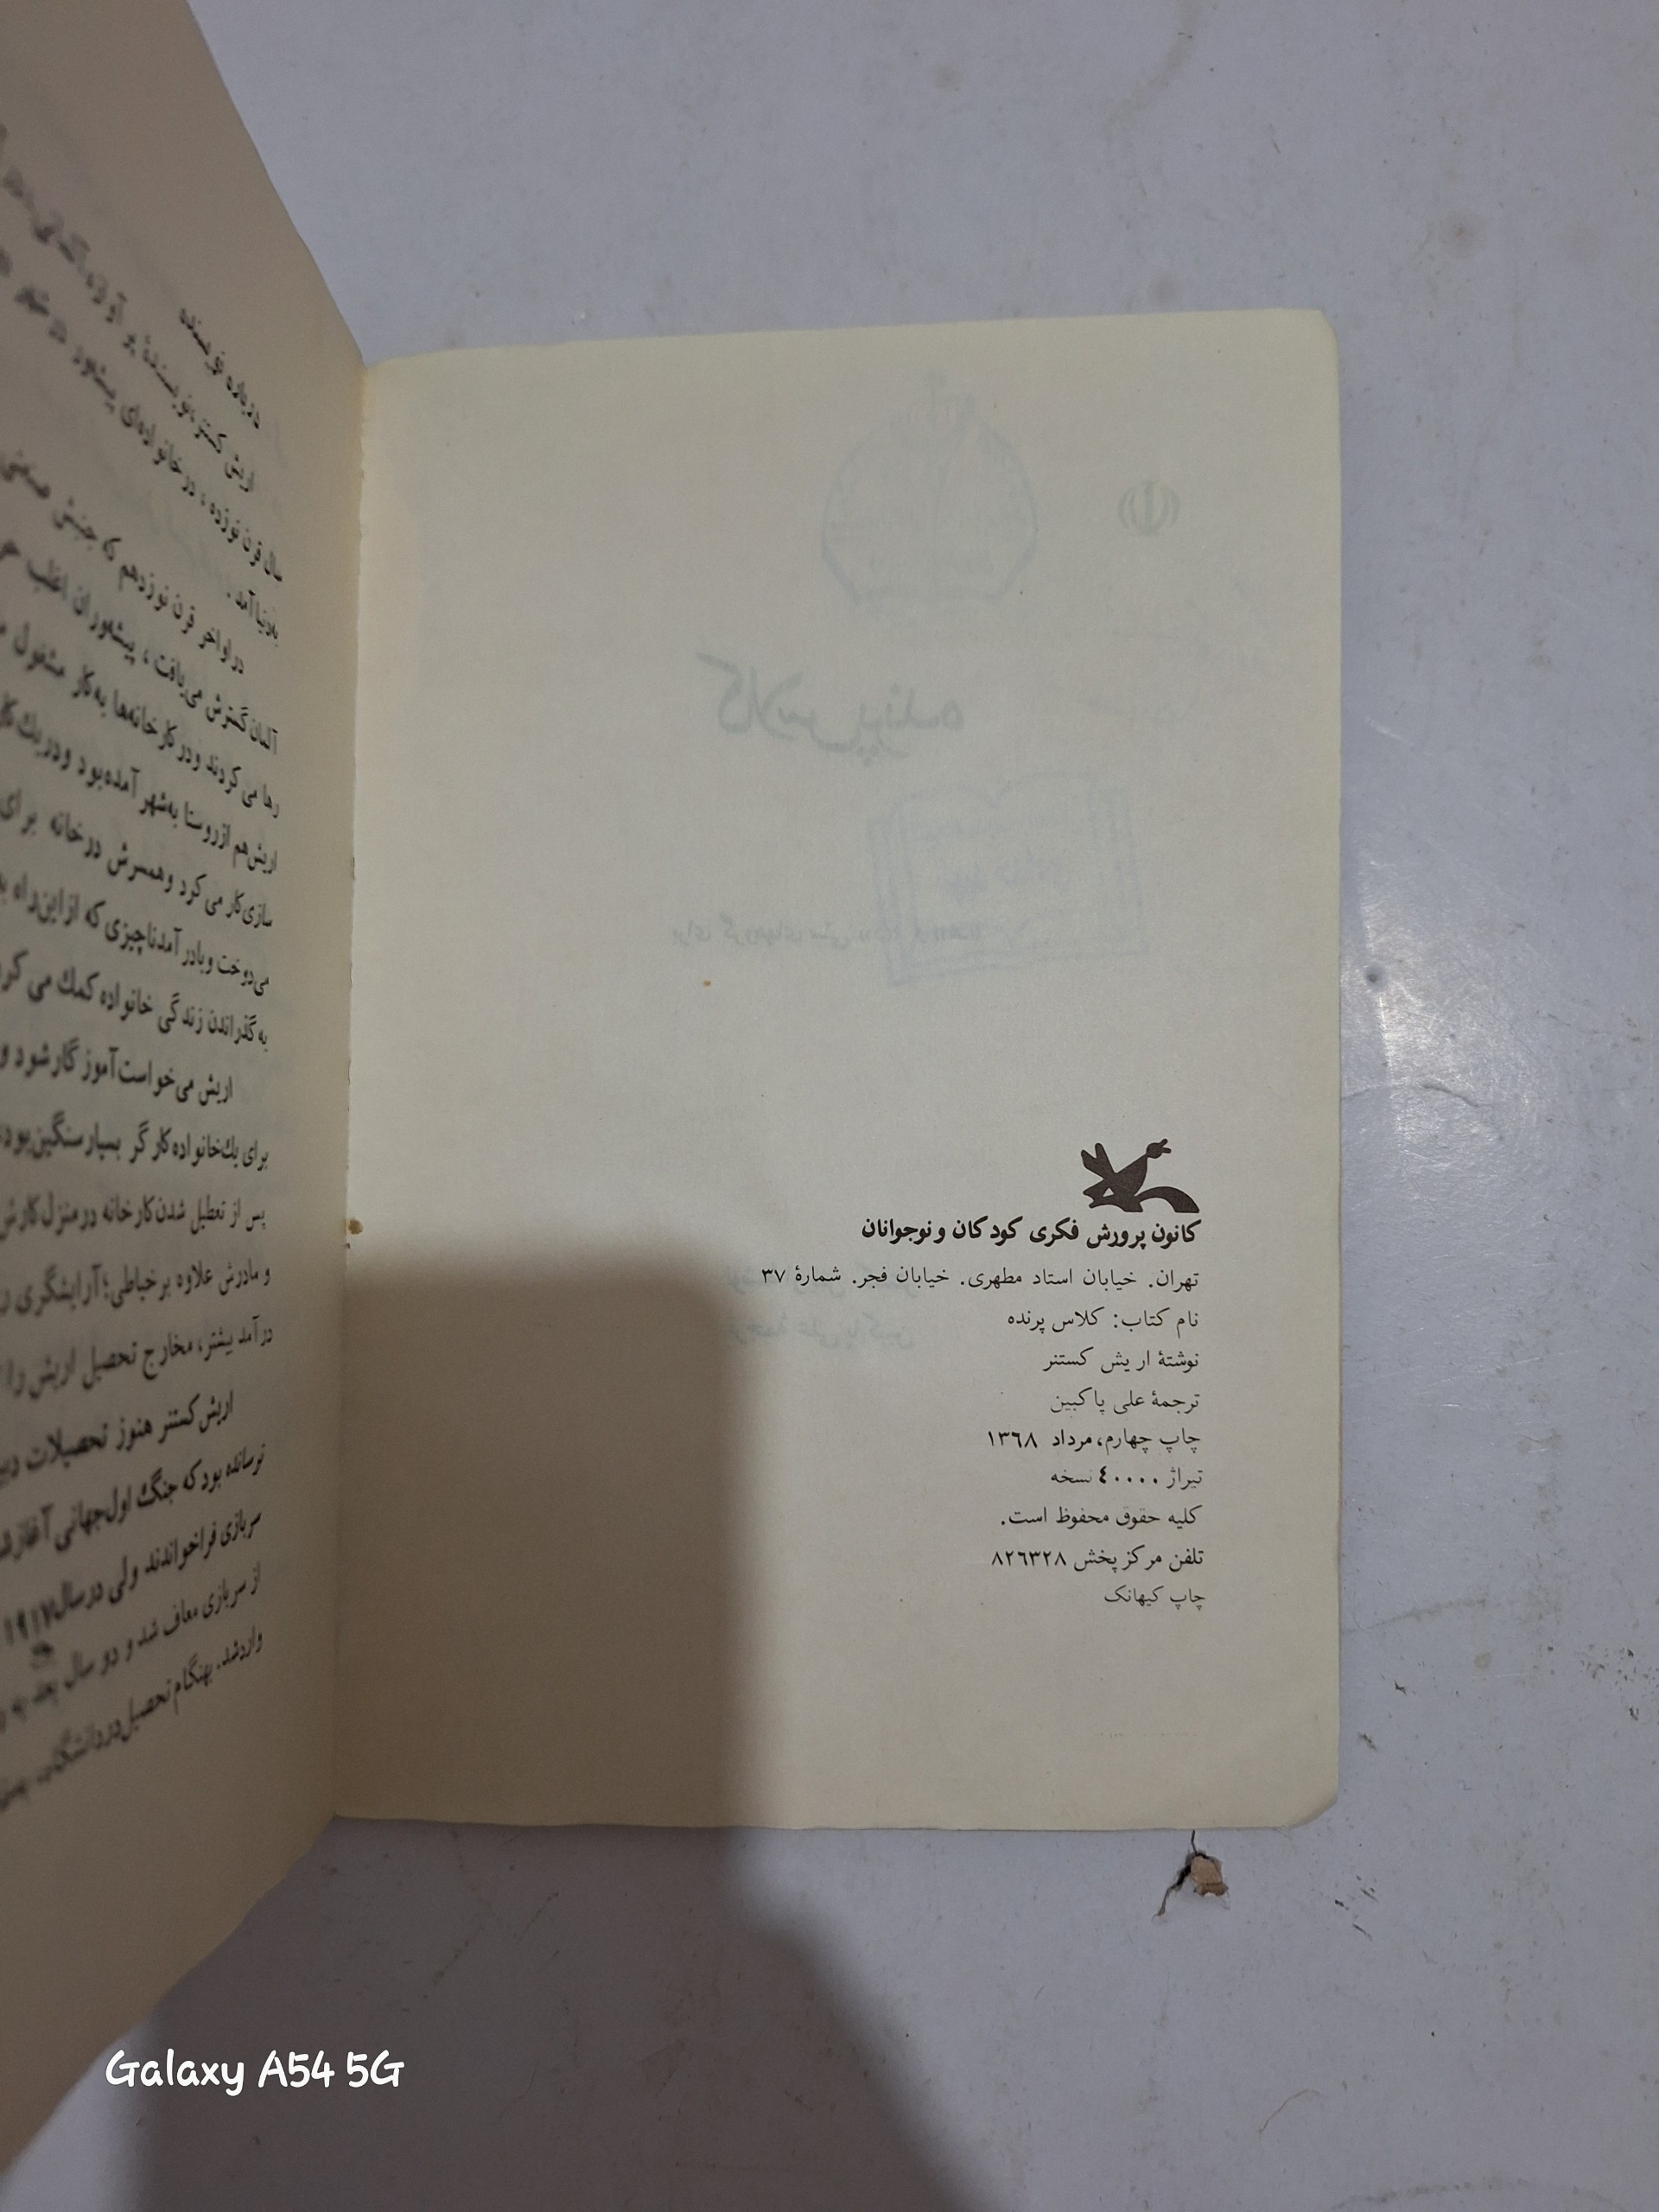 کانون پرورش فکری کودکان و نوجوانان
تهران. خیابان استاد مطهری. خیابان فجر. شمارهٔ ۳۷
نام کتاب: کلاس پرنده
نوشتهٔ اریش کستنر
ترجمهٔ علی پاکبین
چاپ چهارم، مرداد ۱۳۶۸
تیراژ ۴۰۰۰۰ نسخه
کلیه حقوق محفوظ است.
تلفن مرکز پخش ۸۲۶۳۲۸
چاپ کیهانک
درباره نویسنده
اریش کستنر، نویسندهٔ پر آوازه
سال قرن نوزده، در خانواده‌ای پیشه‌ور در شهر
به‌دنیا آمد.
در اواخر قرن نوزدهم که جنبش صنعتی
آلمان گسترش می‌یافت، پیشه‌وران اغلب
رها می‌کردند و در کارخانه‌ها به‌کار مشغول
اریش هم از روستا به‌شهر آمده بود و در یك
سازی کار می‌کرد و همسرش در خانه برای
می‌دوخت و با در آمد ناچیزی که از این راه
به گذراندن زندگی خانواده کمك می
اریش می‌خواست آموزگار شود و
برای یك خانواده کارگر بسیار سنگین بود
پس از تعطیل شدن کارخانه در منزل کارش
و مادرش علاوه بر خیاطی؛ آرایشگری
در آمد بیشتر، مخارج تحصیل اریش را
اریش کستنر هنوز تحصیلات
نرسانده بود که جنگ اول جهانی آغاز
سربازی فراخواندند ولی در سال ۱۹۱۷
از سربازی معاف شد و دو سال بعد به
وارد شد. بهنگام تحصیل در دانشگاه
Galaxy A54 5G